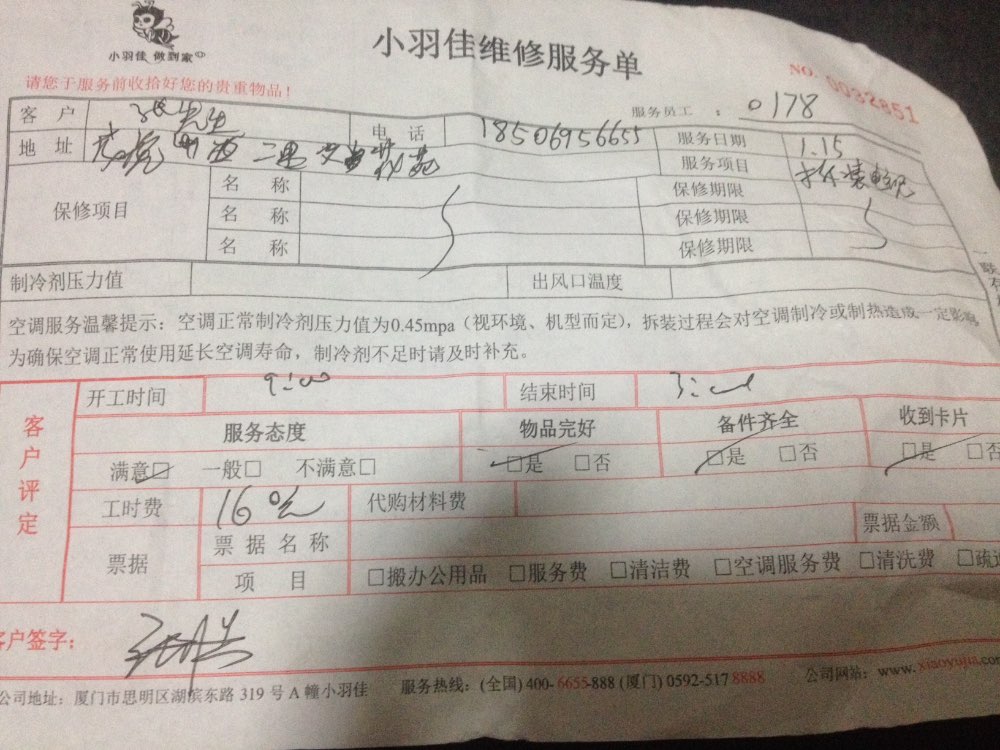 小羽佳 做到家
小羽佳维修服务单
请您于服务前收拾好您的贵重物品！
NO. 0032851
服务员工： 0178
客 户 张先生 电 话 18506956655 服务日期 1.15
地 址 二里 服务项目 拆装
保修项目 名 称 保修期限
名 称 保修期限
名 称 保修期限
制冷剂压力值 出风口温度
空调服务温馨提示：空调正常制冷剂压力值为0.45mpa（视环境、机型而定），拆装过程会对空调制冷或制热造成一定影响
为确保空调正常使用延长空调寿命，制冷剂不足时请及时补充。
客户评定
开工时间 9:00 结束时间
服务态度 物品完好 备件齐全 收到卡片
满意☑ 一般□ 不满意□ □是 □否 □是 □否 □是 □否
工时费 160元 代购材料费
票据 票据名称 票据金额
项 目 □搬办公用品 □服务费 □清洁费 □空调服务费 □清洗费 □疏
客户签字：
公司地址：厦门市思明区湖滨东路 319 号 A 幢小羽佳 服务热线：(全国) 400-6655-888 (厦门) 0592-5178888 公司网站：www.xiaoyujia.com